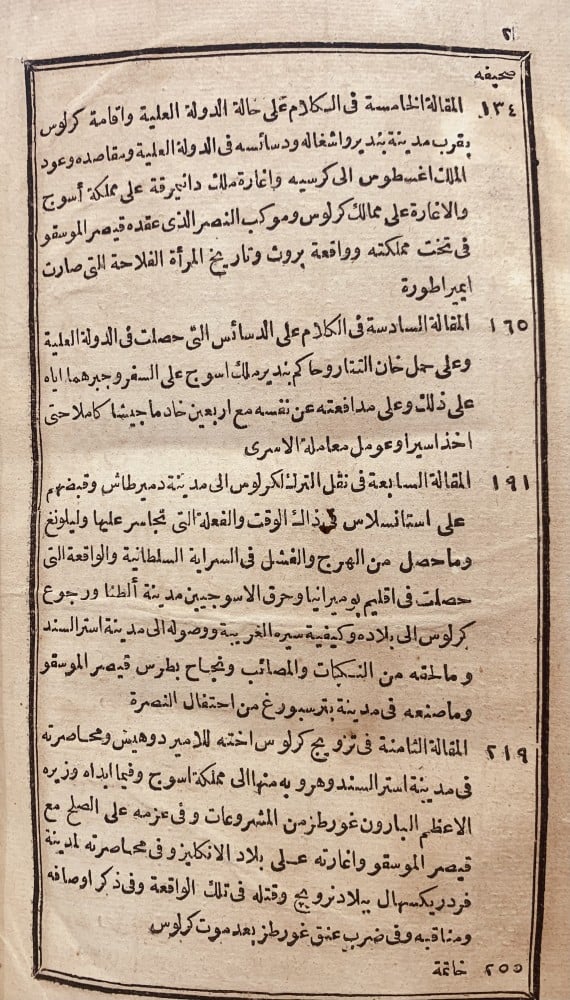 ٢
صحيفه
١٣٤ المقالة الخامسة فى الكلام على حالة الدولة العلية واقامة كرلوس
بقرب مدينة بندير واشغاله ودسائسه فى الدولة العلية ومقاصده وعود
الملك اغسطوس الى كرسيه واغارة ملك دانيمرقة على مملكة أسوج
والاغارة على ممالك كرلوس وموكب النصر الذى عقده قيصر الموسقو
فى تخت مملكته وواقعة بروث وتاريخ المرأة الفلاحة التى صارت
ايمبراطورة
١٦٥ المقالة السادسة فى الكلام على الدسائس التى حصلت فى الدولة العلية
وعلى حمل خان التتار وحاكم بندير ملك اسوج على السفر وجبرهما اياه
على ذلك وعلى مدافعته عن نفسه مع اربعين خادما جيشا كاملا حتى
اخذ اسيرا وعومل معاملة الاسرى
١٩١ المقالة السابعة فى نقل الترك لكرلوس الى مدينة دميرطاش وقبضهم
على استانسلاس فى ذاك الوقت والفعلة التى تجاسر عليها وليلونغ
وما حصل من الهرج والفشل فى السراية السلطانية والواقعة التى
حصلت فى اقليم بوميرانيا وحرق الاسوجيين مدينة ألطنا ورجوع
كرلوس الى بلاده وكيفية سيره الغريبة ووصوله الى مدينة استرالسند
وما لحقه من النكبات والمصائب ونجاح بطرس قيصر الموسقو
وما صنعه فى مدينة بترسبورغ من احتفال النصرة
٢١٩ المقالة الثامنة فى تزويج كرلوس اخته للامير دوهيس ومحاصرته
فى مدينة استرالسند وهروبه منها الى مملكة اسوج وفيما ابداه وزيره
الاعظم البارون غورطز من المشروعات وفى عزمه على الصلح مع
قيصر الموسقو واغارته على بلاد الانكليز وفى محاصرته لمدينة
فردريكسهال ببلاد نرويج وقتله فى تلك الواقعة وفى ذكر اوصافه
ومناقبه وفى ضرب عنق غورطز بعد موت كرلوس
٢٥٥ خاتمة